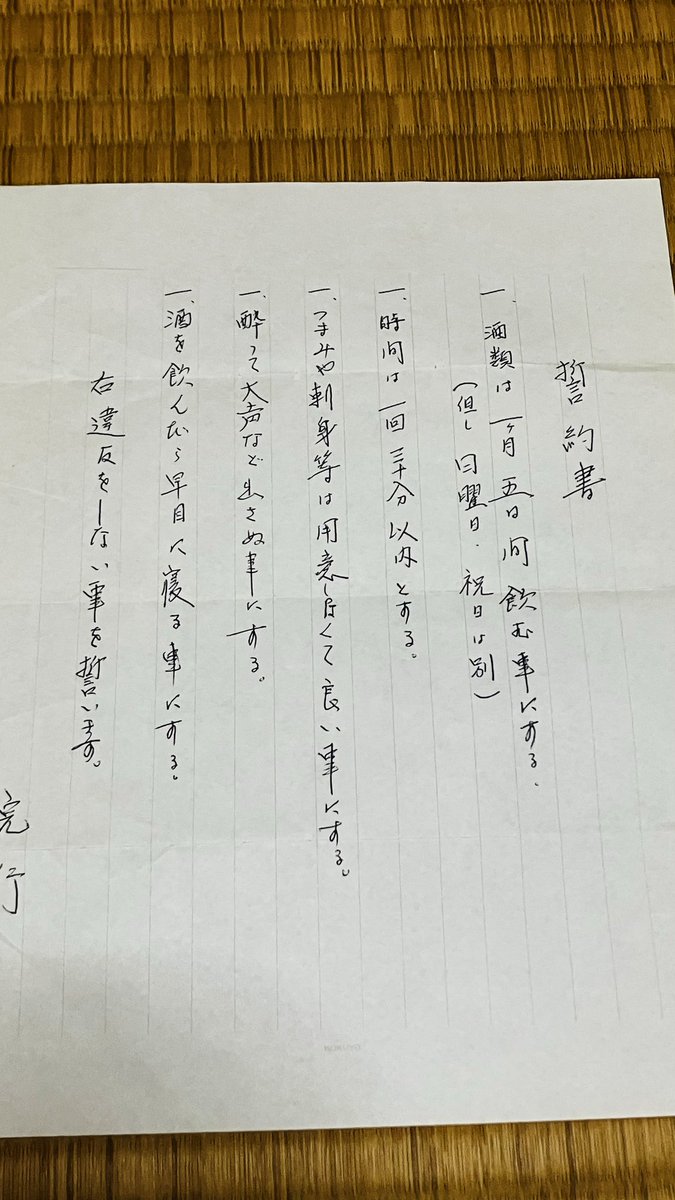 誓約書
一、酒類は一ヶ月五日間飲む事にする。
（但し日曜日・祝日は別）
一、時間は一回三十分以内とする。
一、つまみや刺身等は用意しなくて良い事にする。
一、酔って大声など出さぬ事にする。
一、酒を飲んだら早目に寝る事にする。
右違反をしない事を誓います。